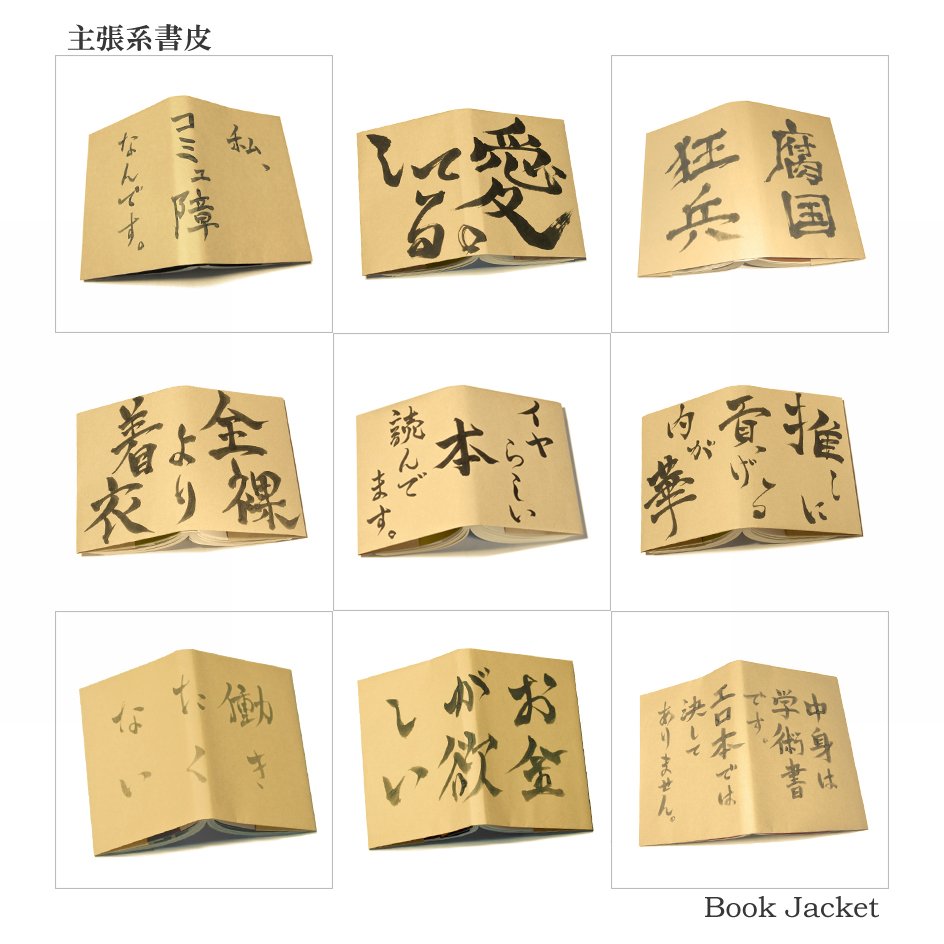 主張系書皮
私、
コミュ障
なんです。
愛
して
る。
腐国
狂兵
全裸
より
着衣
イヤらしい
本
読んで
ます。
推しに
貢げる
内が
華
働き
たく
ない
お金
が欲
しい
中身は
学術書
です。
エロ本では
決して
ありません。
Book Jacket